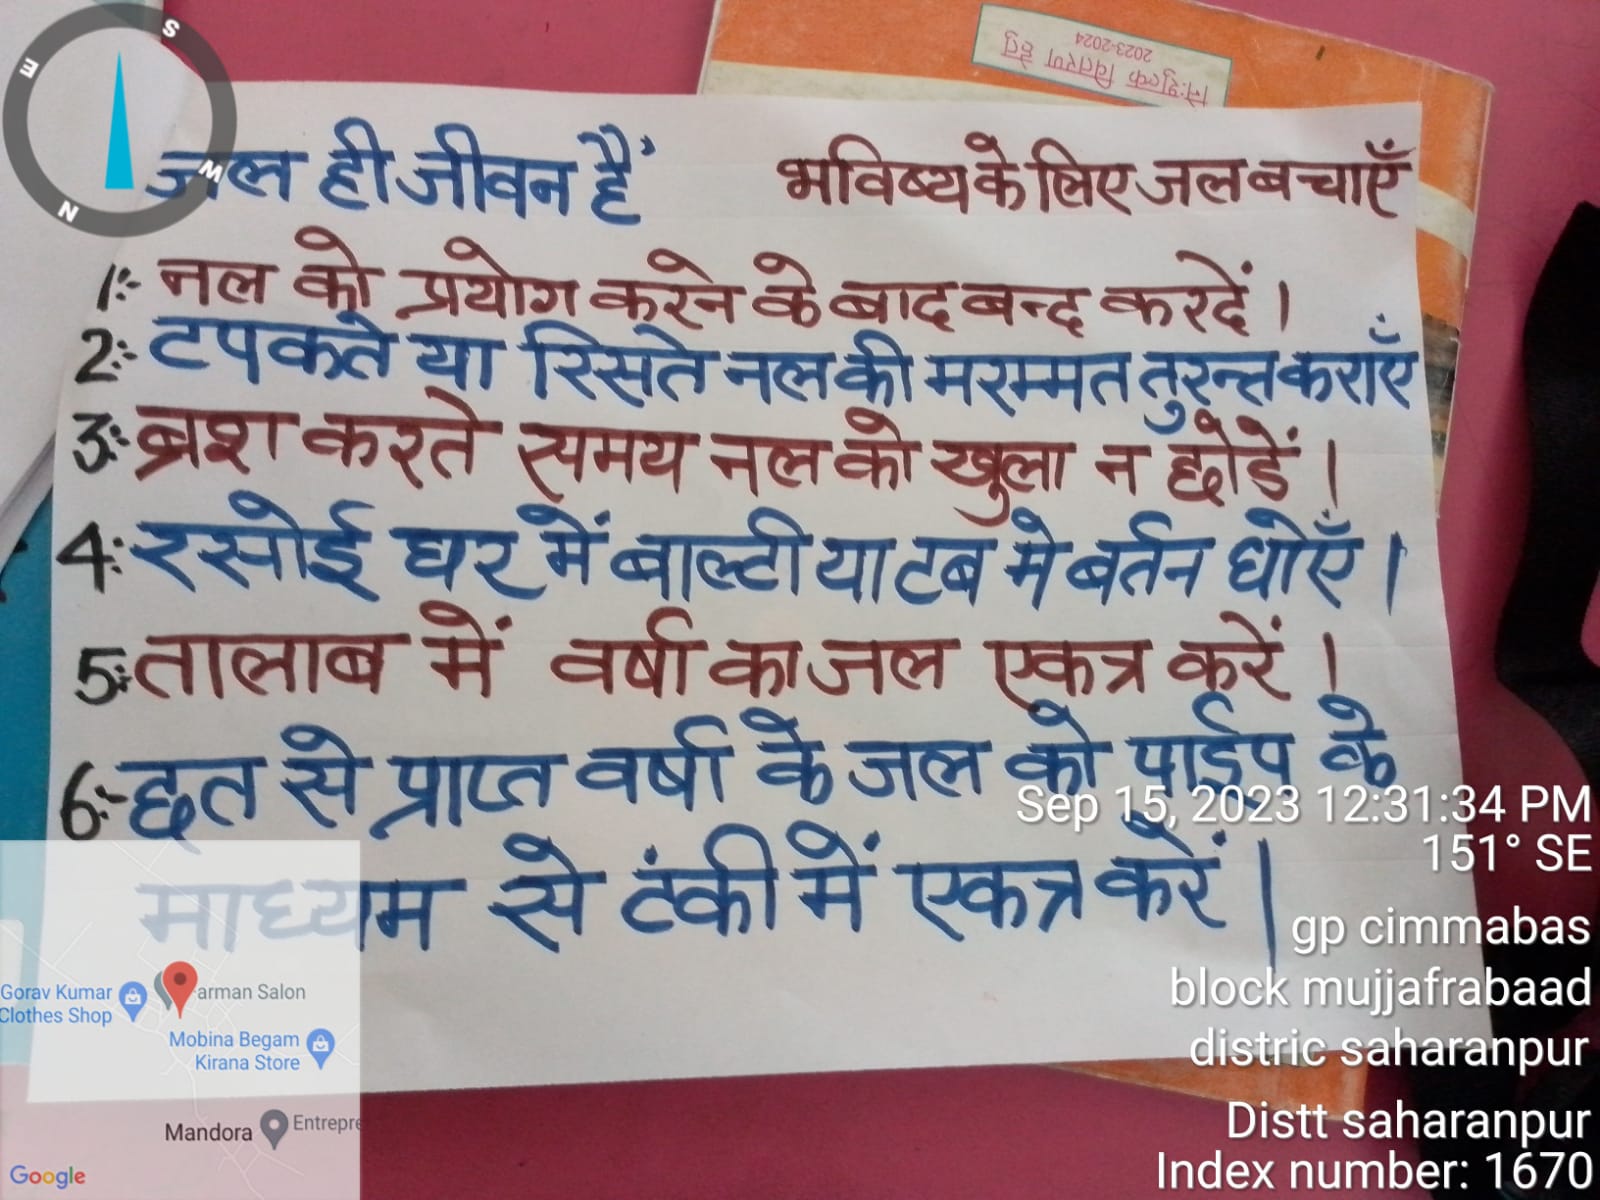 जल ही जीवन हैं भविष्य के लिए जल बचाएँ
1:- नल को प्रयोग करने के बाद बन्द कर दें।
2:- टपकते या रिसते नल की मरम्मत तुरन्त कराएँ
3:- ब्रश करते समय नल को खुला न छोडें।
4:- रसोई घर में बाल्टी या टब मे बर्तन धोएँ।
5:- तालाब में वर्षा का जल एकत्र करें।
6:- छत से प्राप्त वर्षा के जल को पाईप के
माध्यम से टंकी में एकत्र करें।
नि:शुल्क वितरण हेतु
2023-2024
S
E
W
N
Sep 15, 2023 12:31:34 PM
151° SE
gp cimmabas
block mujjafrabaad
distric saharanpur
Distt saharanpur
Index number: 1670
Gorav Kumar
Clothes Shop
arman Salon
Mobina Begam
Kirana Store
Mandora
Entrepre
Google